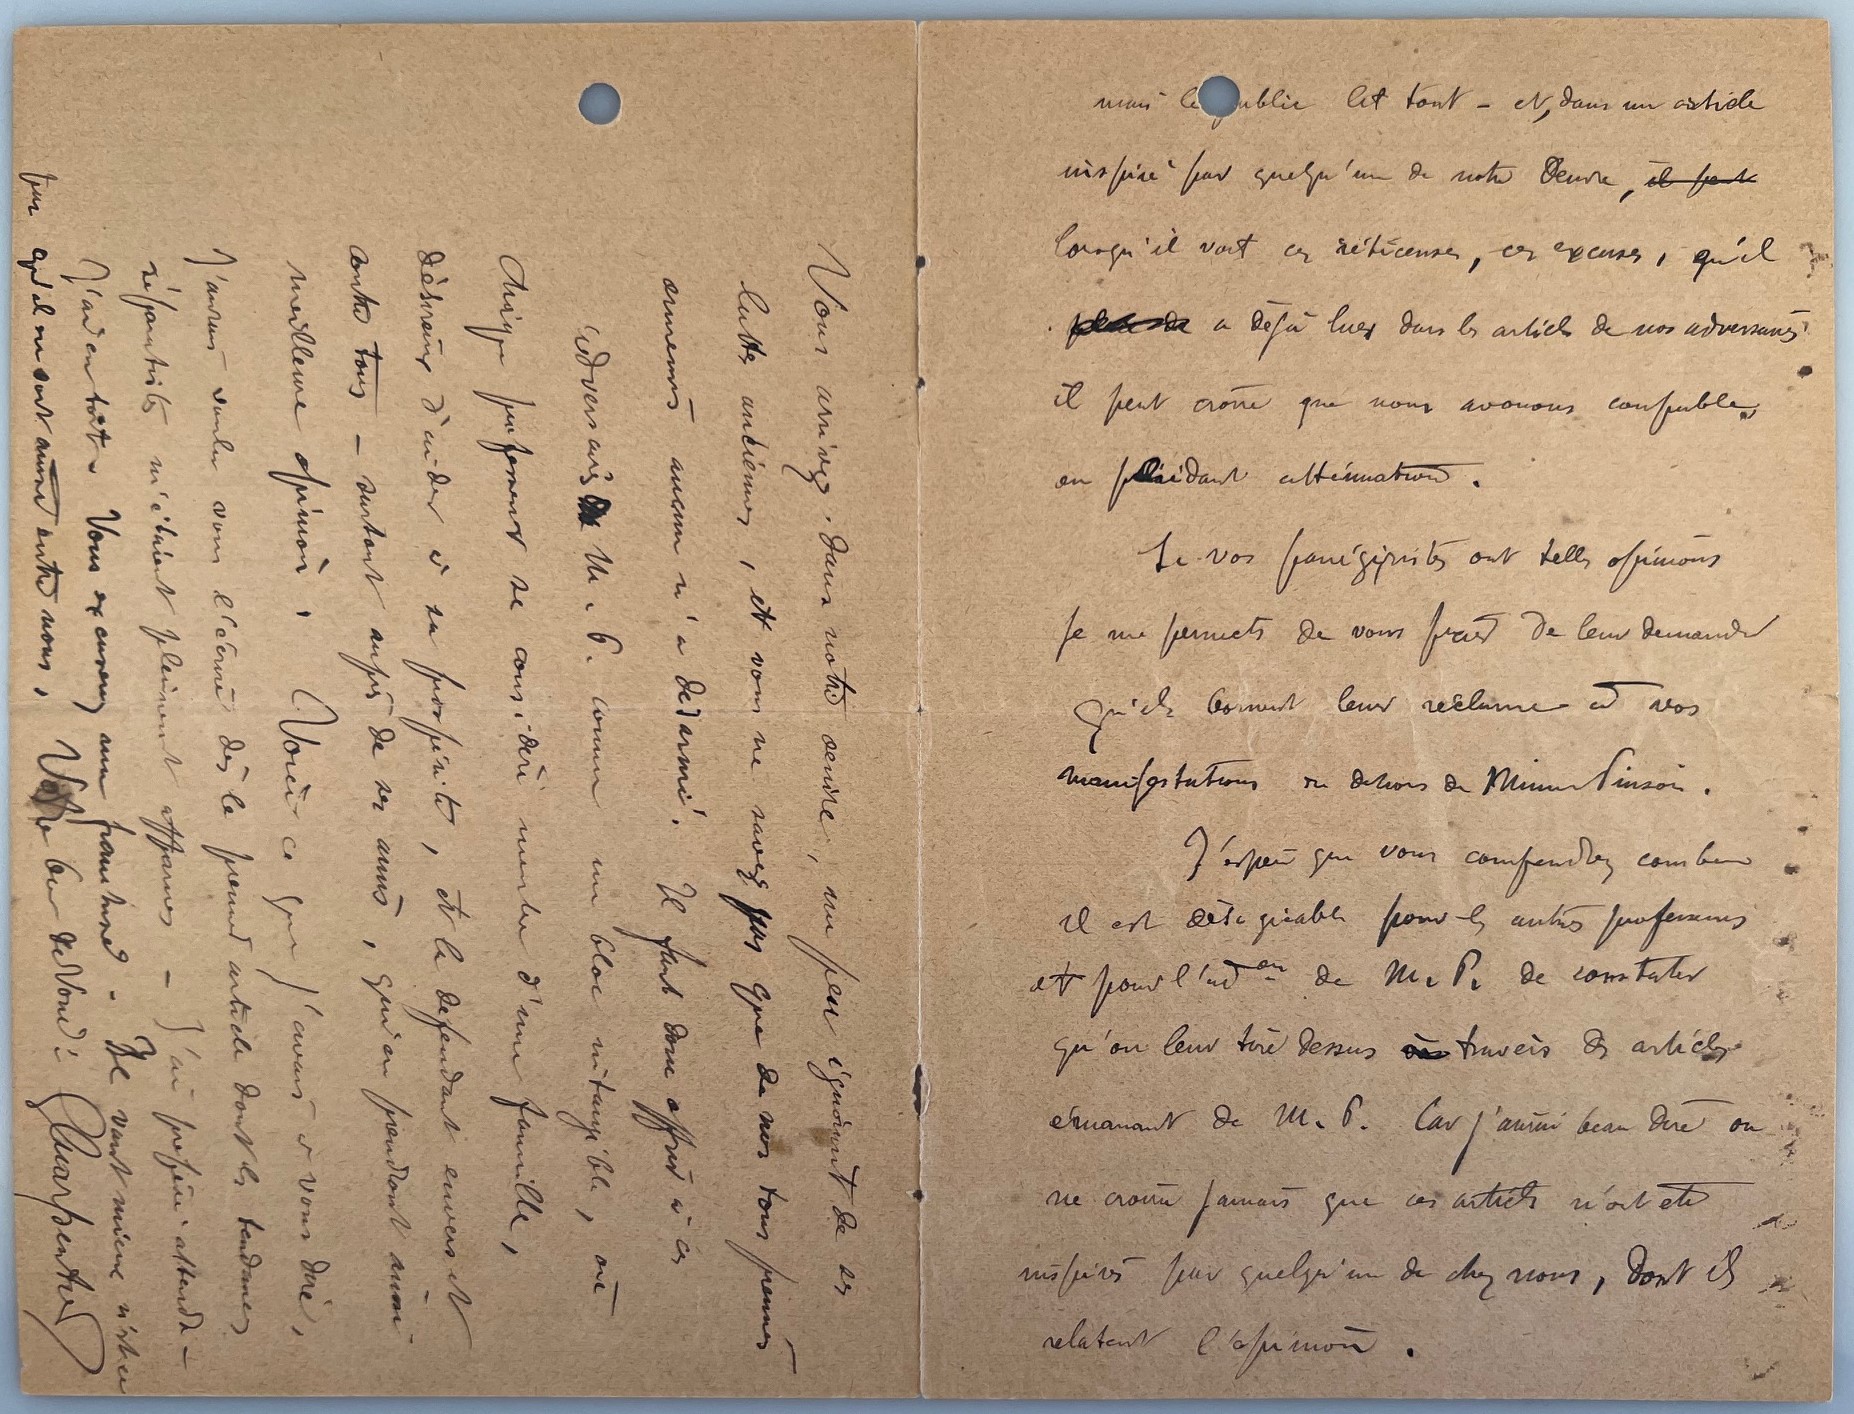 mais le public lit tout – et, dans un article
inspiré par quelqu'un de notre Oeuvre, il peut
lorsqu'il voit ces réticenses, ces excuses, qu'il
a déjà lues dans les articles de nos adversaires
il peut croire que nous avouons coupables
en plaidant atténuation.
Si vos panégyristes ont telles opinions
je me permets de vous prier de leur demander
qu'ils bornent leur réclame à vos
manifestations en dehors de Mimi Pinson.
J'espère que vous comprendrez combien
il est désagréable pour les autres professeurs
et pour l'adon de M. P. de constater
qu'on leur tire dessus à travers des articles
émanant de M. P. Car j'aurai beau dire on
ne croira jamais que ces articles n'ont été
inspirés par quelqu'un de chez nous, dont ils
relatent l'opinion.
Vous arrivez dans notre oeuvre, un peu ignorant de ses
luttes anciennes, et vous ne savez pas que de nos tous premiers
ennemis aucun n'a désarmé. Il faut donc offrir à ces
adversaires de M. P. comme un bloc intangible, où
chaque professeur se considère membre d'une famille,
désireux d'aider à sa prospérité, et la défendant envers et
contre tous – surtant auprès de ses amis, qui en prendront ainsi
meilleure opinion. Voici ce que j'avais à vous dire,
J'aurais voulu vous l'écrire dès le premier article dont les tendances
séparatistes m'étaient pleinement apparues – J'ai préféré attendre –
J'ai eu tort. Vous excuserez ma franchise. Il vaut mieux n'est-ce
pas qu'il en soit ainsi entre nous. Votre bien dévoué. Charpentier